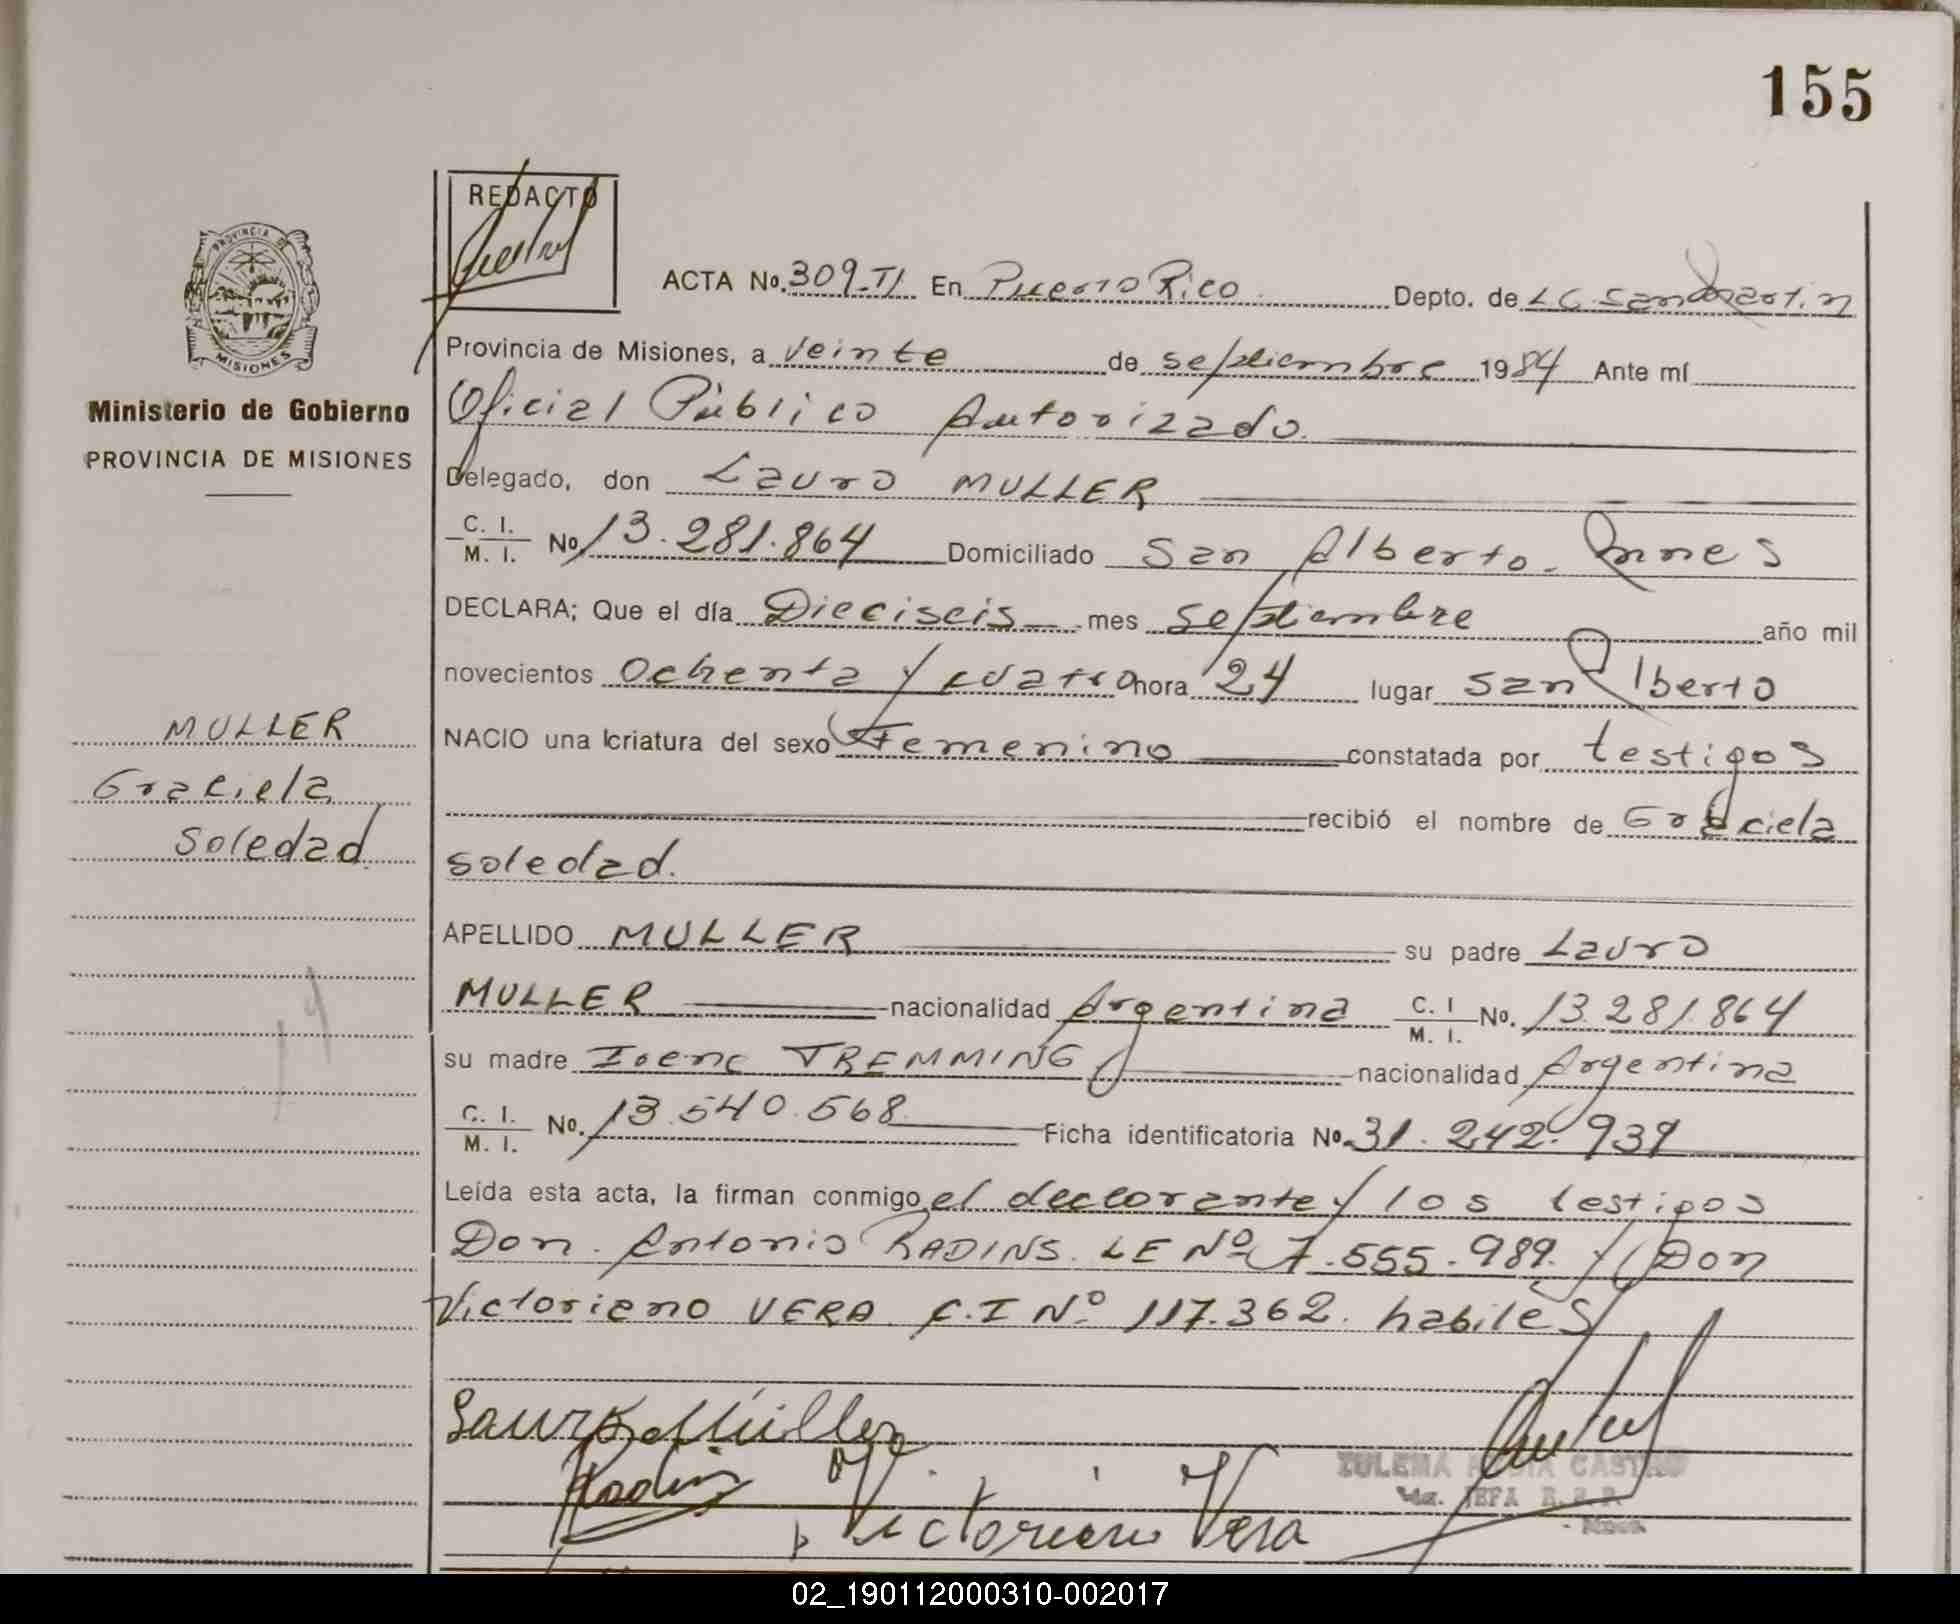 155
REDACTO
PROVINCIA DE
MISIONES
Ministerio de Gobierno
PROVINCIA DE MISIONES
MULLER
Graciela
Soledad
ACTA No. 309-TI En Puerto Rico Depto. de L G. San Martin
Provincia de Misiones, a veinte de septiembre 1984 Ante mí
Oficial Público Autorizado.
Delegado, don Lauro MULLER
C. I.
M. I. No 13.281.864 Domiciliado San Alberto. Mnes
DECLARA; Que el día Dieciseis mes septiembre año mil
novecientos ochenta y cuatro hora 24 lugar San Alberto
NACIO una criatura del sexo Femenino constatada por testigos
recibió el nombre de Graciela
soledad.
APELLIDO MULLER su padre Lauro
MULLER nacionalidad Argentina C. I M. I. No. 13.281.864
su madre Irene TREMMING nacionalidad Argentina
C. I.
M. I. No. 13.540.568 Ficha identificatoria No. 31.242.939
Leída esta acta, la firman conmigo el declarante y los testigos
Don. Antonio RADINS. LE Nº 7.555.989. y Don
Victoriano VERA C.I Nº 117.362. habiles
Lauro Müller
Radins
Victoriano Vera
ZULEMA CASTRO
JEFA
02_190112000310-002017